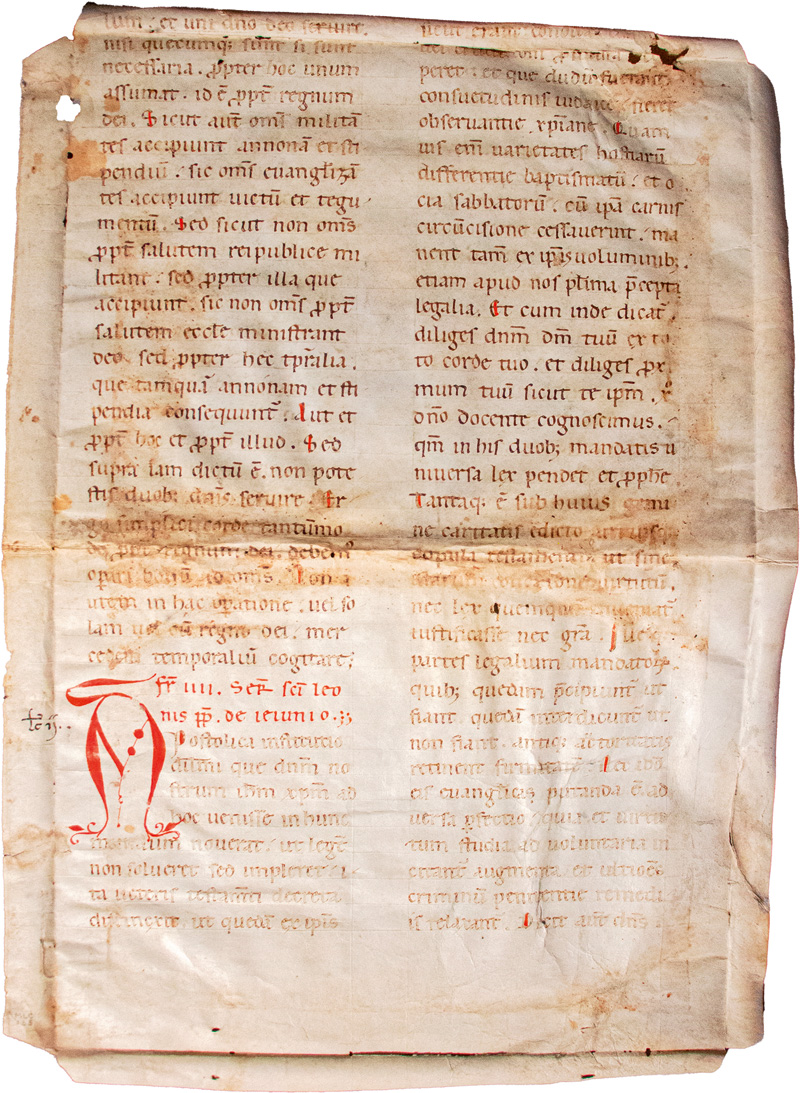 lum. et uni dño deo servire.
nisi quecunq; sunt si sunt
necessaria. ꝓpter hoc unum
assumat. id ē ꝓpt̄ regnum
dei. Sicut aut̄ om̄s militā
tes accipiunt annonā et sti
pendiū. sic om̄s euangl̄izā
tes accipiunt victū et tegu
mentū. Sed sicut non om̄s
ꝓpt̄ salutem reipublice mi
litant. sed ꝓpter illa que
accipiunt. sic non om̄s ꝓpt̄
salutem eccl̄e ministrant
deo. sed ꝓpter hec tp̄ralia.
que tamquā annonam et sti
pendia consequunt̄. Aut et
ꝓpt̄ hoc et ꝓpt̄ illud. Sed
supra iam dictū ē. non pote
stis duob; dn̄is servire. Er
go simplici corde tantūmo
do ꝓpt̄ regnum dei. debem̄
operari bonū ad om̄s. Non a
utem in hac operatione. vel so
lam vel cū regno dei. mer
cedem temporaliū cogitare;
Ff̄ IIII. Ser̄ sc̄i leo
nis pp̄. de ieiunio. ꝫ
lc̄ ij.
Apostolica institutio
que dnm̄ no
strum ih̄m xp̄m ad
hoc venisse in hunc
mundum noverat. ut lege̅
non solveret sed impleret. i
ta veteris testam̄ti decreta
distinxit. ut quedā ex ip̄is
peret. et que dudū fuerant
consuetudinis iudaice. fieret
observantie xp̄iane. Quam
vis em̄ varietates hostiarū
differentie baptismatū. et o
cia sabbatorū. cū ip̄a carnis
circūcisione cessaverint. ma
nent tam̄ ex ip̄is voluminib;
etiam apud nos pl̄ima p̄cepta
legalia. Et cum inde dicat̄.
diliges dn̄m dm̄ tuū ex to
to corde tuo. et diliges ꝓxi
mum tuū sicut te ip̄m.
dn̄o docente cognoscimus.
qm̄ in his duob; mandatis u
niversa lex pendet et ꝓph̄e
Tantaq; ē sub huius gemi
ne caritatis edicto utriusq;
copula testamenti. ut sine
virtutū.
nec lex quemquā inveniat̄
iustificasse nec gr̄a.
partes legalium mandatoꝝ
quib; quedam p̄cipiunt̄ ut
fiant. quedā interdicunt̄ ut
non fiant. antiq; auctoritatis
retinent firmitatē. Sei
eis euangelicas putanda ē ad
versa ꝑfectio. quia et virtu
tum studia ad voluntaria in
citant̄ augmenta. et ultiones
criminū penitentie remedi
is relaxant̄. Licet aut̄ dn̄s